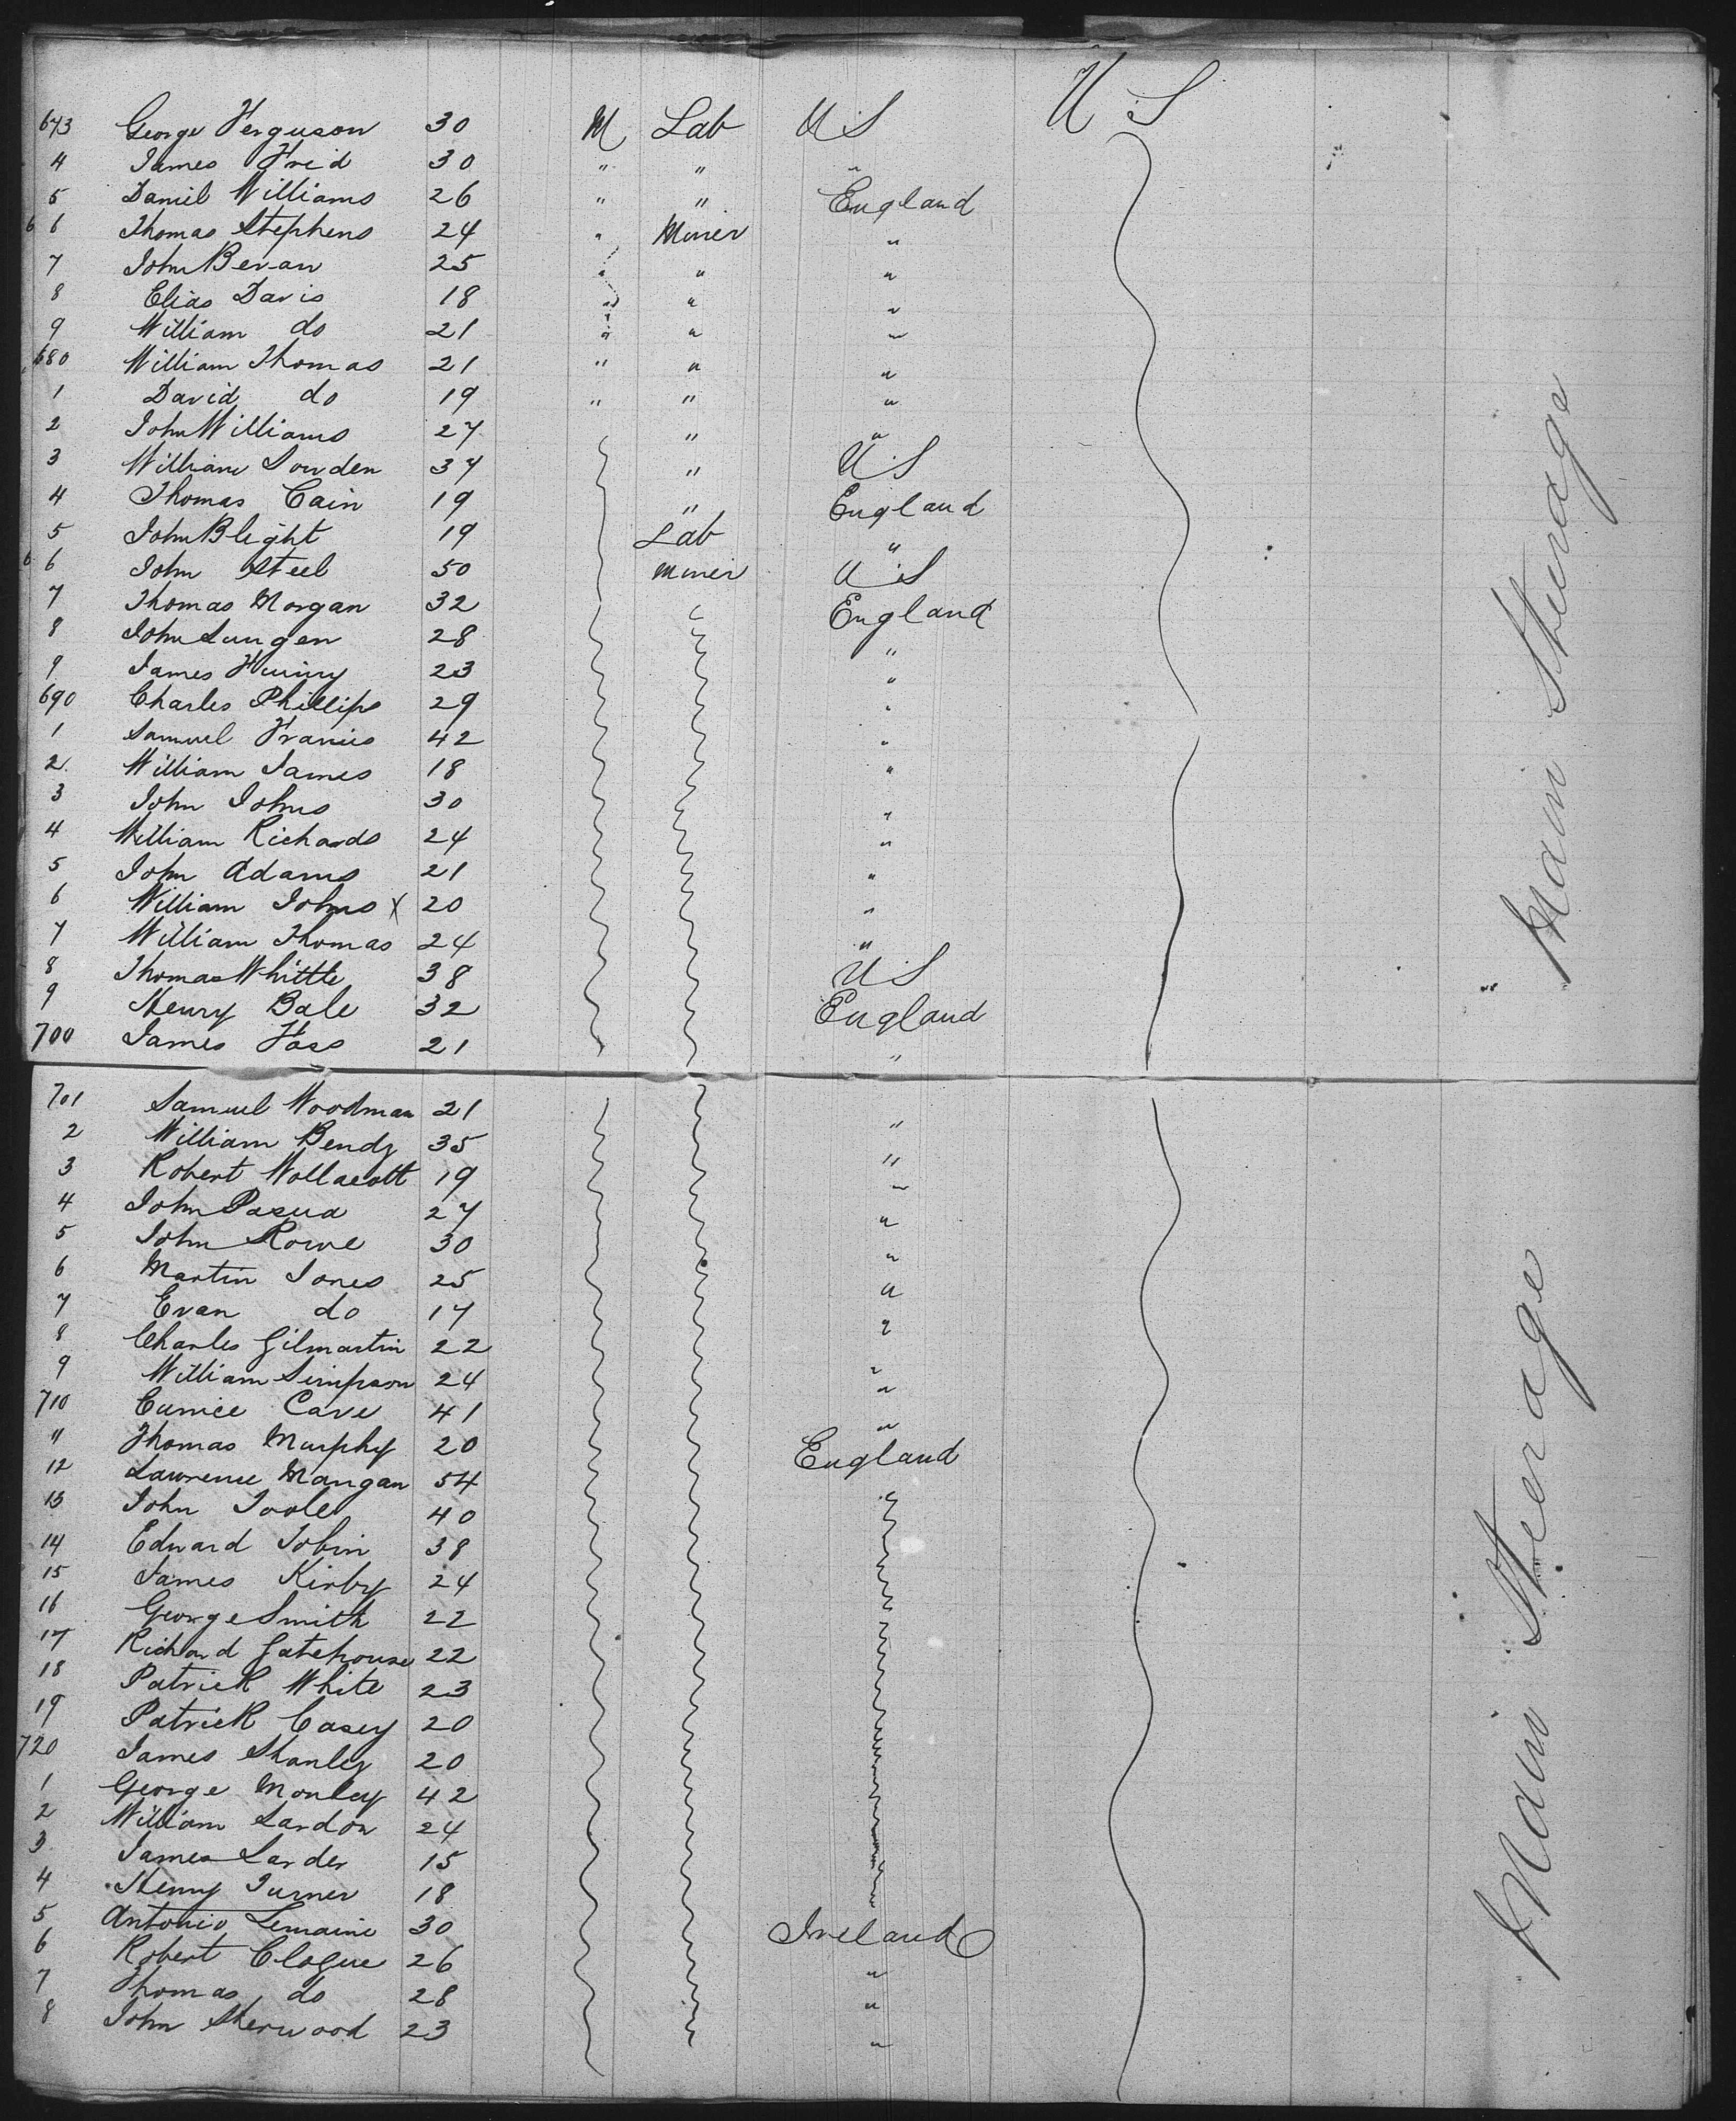 673 George Ferguson 30 M Lab U S U S
4 James Freid 30 " " "
5 Daniel Williams 26 " " England
6 6 Thomas Stephens 24 " Miner "
7 John Bevan 25 " " "
8 Elias Davis 18 " " "
9 William do 21 " " "
680 William Thomas 21 " " "
1 David do 19 " " "
2 John Williams 27 " "
3 William Sowden 37 " U S
4 Thomas Cain 19 " England
5 John Blight 19 Lab "
6 6 John Steel 50 Miner U S
7 Thomas Morgan 32 England
8 John 28 "
9 James 23 "
690 Charles Phillips 29 "
1 Samuel Francis 42 "
2 William James 18 "
3 John Johns 30 "
4 William Richards 24 "
5 John Adams 21 "
6 William Johns X 20 "
7 William Thomas 24 "
8 Thomas Whittle 38 U S
9 Henry Bale 32 England
700 James Foss 21 "
" Main Steerage
701 Samuel Woodman 21 "
2 William Bendy 35 "
3 Robert Wollacott 19 "
4 John Pascua 27 "
5 John Rowe 30 "
6 Martin Jones 25 "
7 Evan do 17 "
8 Charles Gilmartin 22 "
9 William Simpson 24 "
710 Eunice Cave 41 "
11 Thomas Murphy 20 England
12 Lawrence Mangan 54
13 John Toole 40
14 Edward Tobin 38
15 James Kirby 24
16 George Smith 22
17 Richard Gatehouse 22
18 Patrick White 23
19 Patrick Casey 20
720 James Stanley 20
1 George Monley 42
2 William Lardon 24
3 James Larder 15
4 Henry Turner 18
5 Antonio Lemaine 30 Ireland
6 Robert Clague 26 "
7 Thomas do 28 "
8 John Sherwood 23 "
Main Steerage